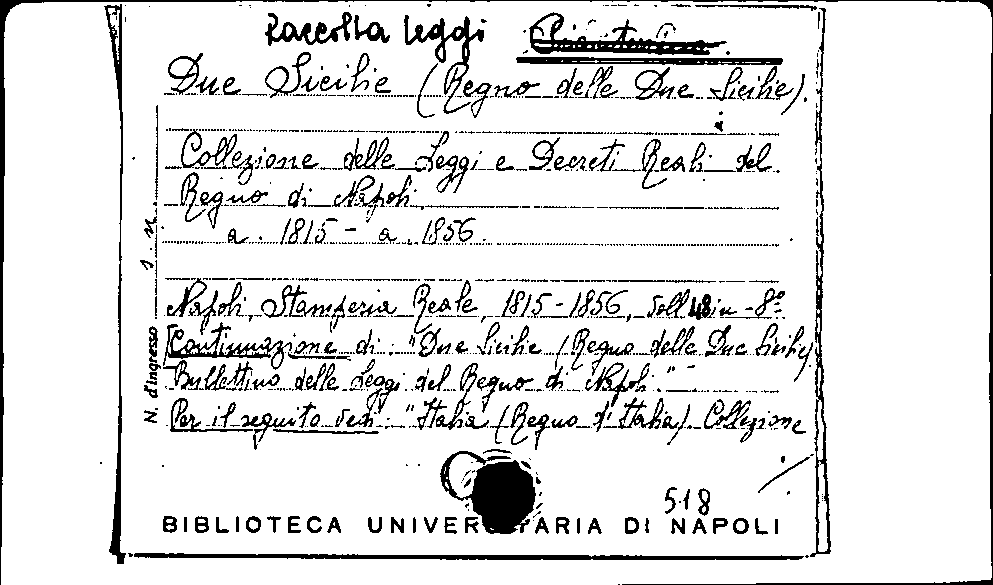 Raccolta Leggi
Due Sicilie (Regno delle Due Sicilie).
Collezione delle Leggi e Decreti Reali del
Regno di Napoli.
a. 1815 - a. 1856.
Napoli, Stamperia Reale, 1815-1856, voll 48 in-8º
(Continuazione di: "Due Sicilie (Regno delle Due Sicilie)
Bullettino delle Leggi del Regno di Napoli."
Per il seguito vedi: "Italia (Regno d'Italia). Collezione
N. d'Ingresso s. n.
518
BIBLIOTECA UNIVERSITARIA DI NAPOLI